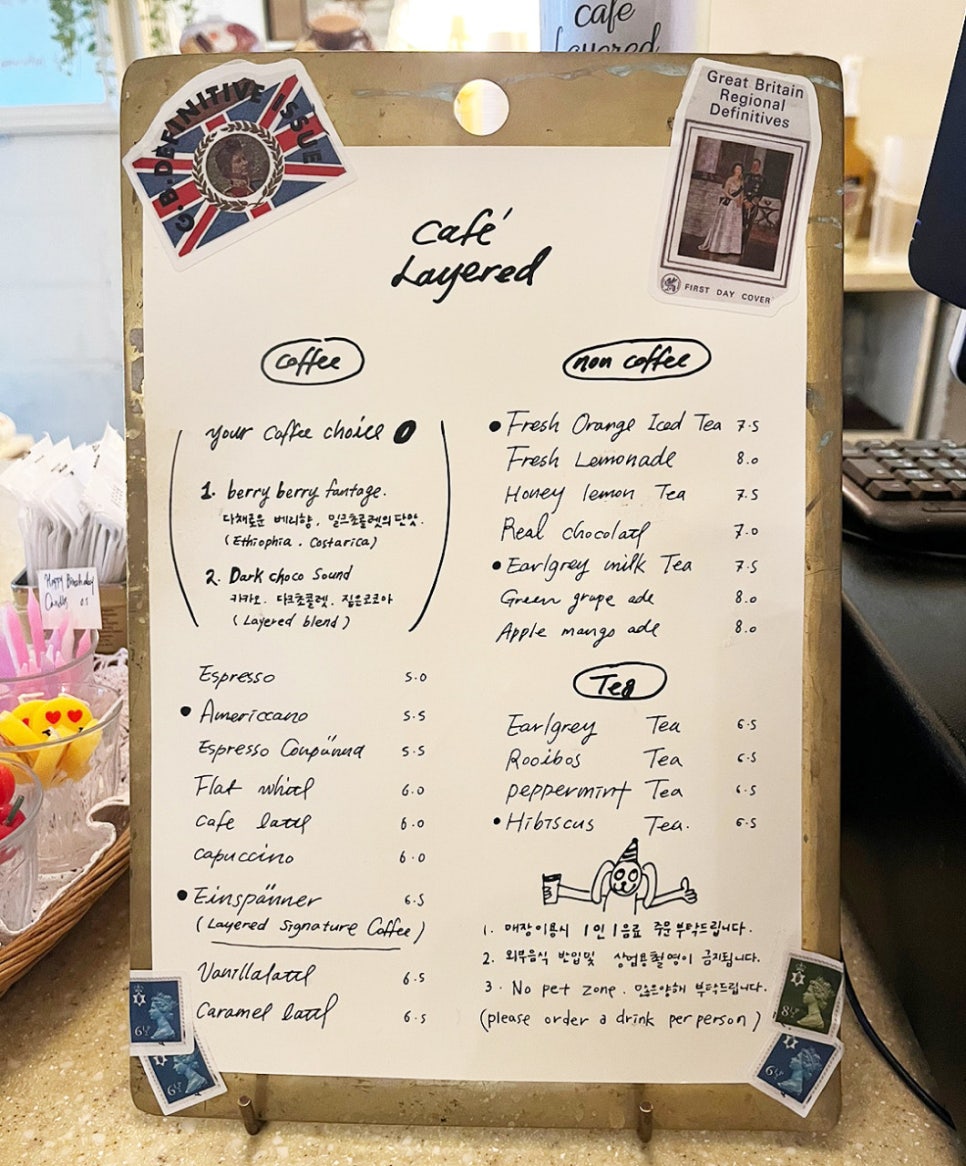 cafe
Layered
G.B. DEFINITIVE ISSUE
Great Britain
Regional
Definitives
FIRST DAY COVER
Café
Layered
Coffee
your Coffee choice
1. berry berry fantage.
다채로운 베리향, 밀크초콜렛의 단맛.
(Ethiophia . Costarica)
2. Dark choco Sound
카카오. 다크초콜렛. 짙은코코아
(Layered blend)
Espresso 5.0
• Americcano 5.5
Espresso Conpänna 5.5
Flat white 6.0
cafe latte 6.0
capuccino 6.0
• Einspänner 6.5
(Layered Signature Coffee)
Vanillalatte 6.5
Caramel latte 6.5
non coffee
• Fresh Orange Iced Tea 7.5
Fresh Lemonade 8.0
Honey lemon Tea 7.5
Real chocolate 7.0
• Earlgrey milk Tea 7.5
Green grape ade 8.0
Apple mango ade 8.0
Tea
Earlgrey Tea 6.5
Rooibos Tea 6.5
peppermint Tea 6.5
• Hibiscus Tea. 6.5
1. 매장이용시 1인 1음료 주문 부탁드립니다.
2. 외부음식 반입및 상업용촬영이 금지됩니다.
3. No pet zone. 많은양해 부탁드립니다.
(please order a drink per person)
Happy Birthday
Candle
6½P
6½P
8½P
6½P